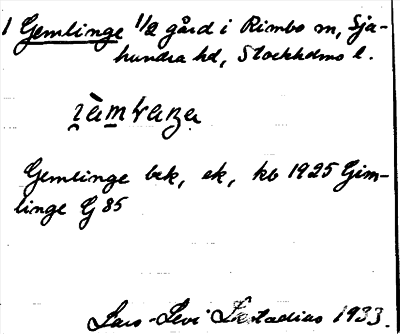 1 Gemlinge 1/2 gård i Rimbo sn, Sju-
hundra hd, Stockholms l.
Gemlinge bek, ek, kb 1925 Gim-
linge G 85
Lars-Levi Læstadius 1933.